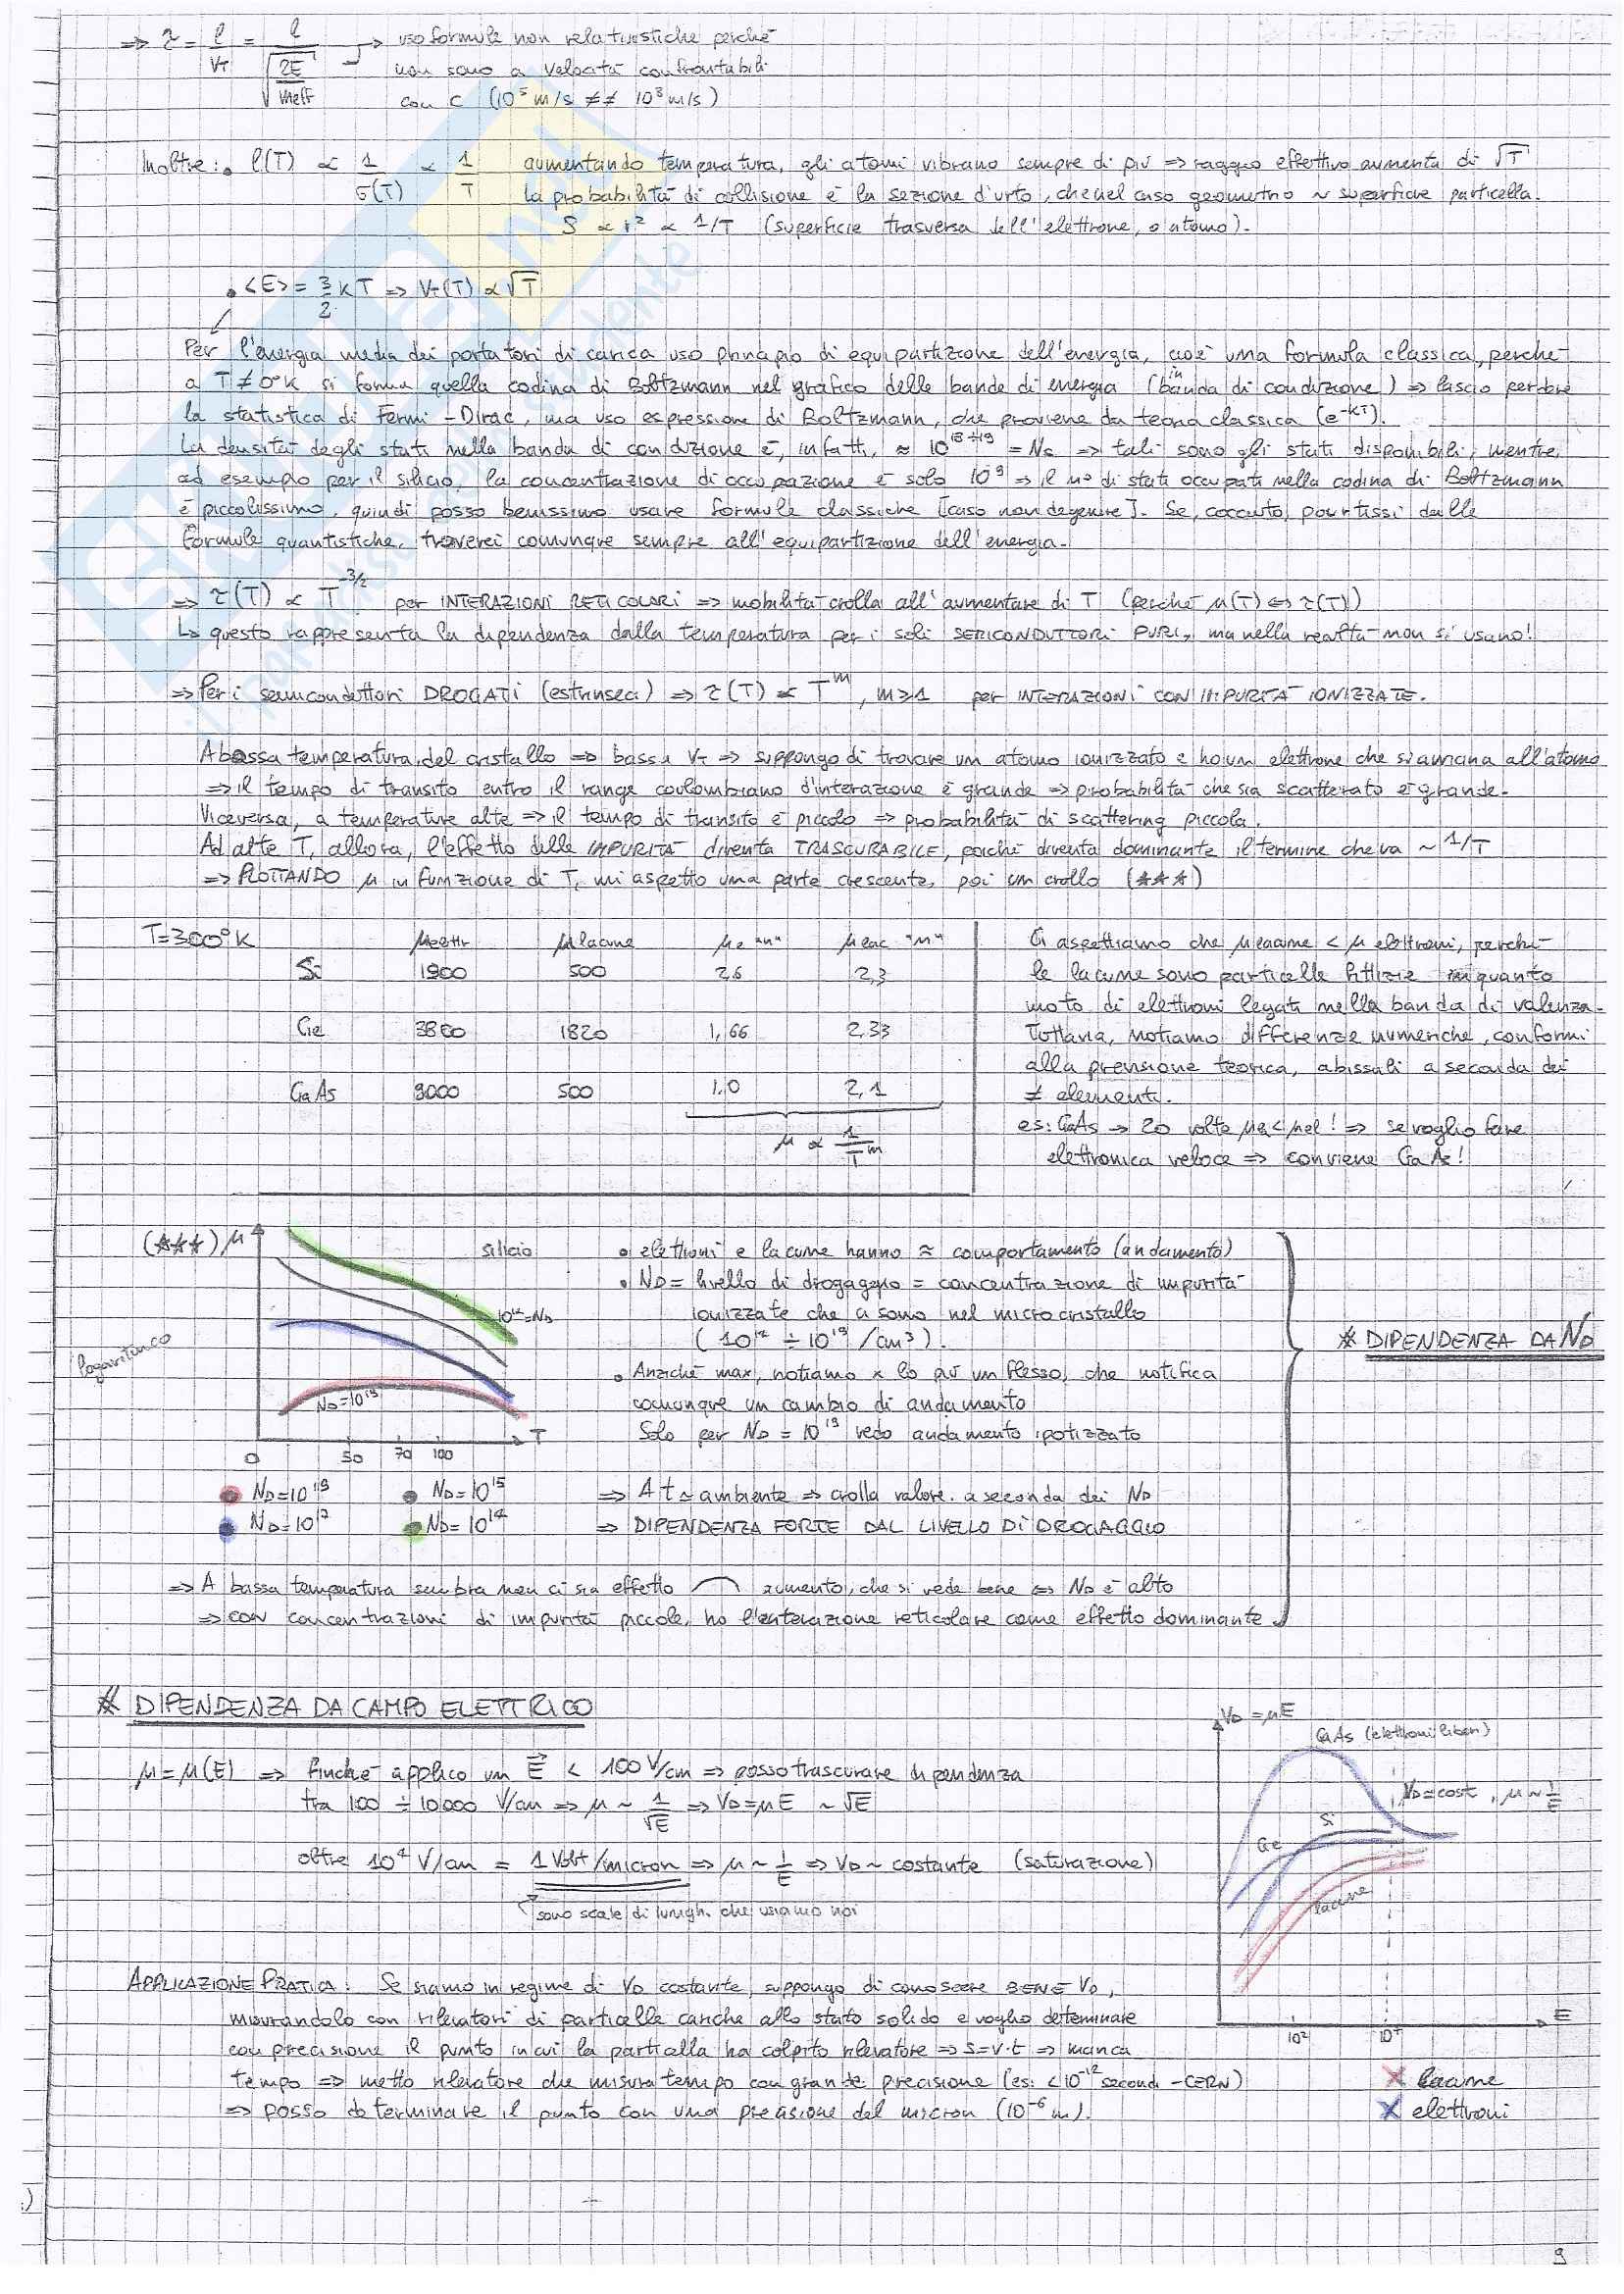 => τ = l/V_T = l/√(2E/meff) → uso formule non relativistiche perché
non sono a velocità confrontabili
con c (10⁵ m/s ≠≠ 10⁸ m/s)
Inoltre: • l(T) ∝ 1/σ(T) ∝ 1/T aumentando temperatura, gli atomi vibrano sempre di più => raggio effettivo aumenta di √T
la probabilità di collisione è la sezione d'urto, che nel caso geometrico ~ superficie particella.
S ∝ r² ∝ 1/T (superficie trasversa dell'elettrone, o atomo).
• <E> = 3/2 kT => V_T(T) ∝ √T
Per l'energia media dei portatori di carica uso principio di equipartizione dell'energia, cioè una formula classica, perché
a T≠0°K si forma quella codina di Boltzmann nel grafico delle bande di energia (in banda di conduzione) => lascio perdere
la statistica di Fermi-Dirac, ma uso espressione di Boltzmann, che proviene da teoria classica (e^-kT).
La densità degli stati nella banda di conduzione è, infatti, ≈ 10^18÷19 = Nc => tali sono gli stati disponibili, mentre,
ad esempio per il silicio, la concentrazione di occupazione è solo 10⁹ => il n° di stati occupati nella codina di Boltzmann
è piccolissimo, quindi posso benissimo usare formule classiche [caso non degenere]. Se, cocciuto, partissi dalle
formule quantistiche, troverei comunque sempre all'equipartizione dell'energia.
=> τ(T) ∝ T^-3/2 per INTERAZIONI RETICOLARI => mobilità crolla all'aumentare di T (perché μ(T) <=> τ(T))
↳ questo rappresenta la dipendenza dalla temperatura per i soli SEMICONDUTTORI PURI, ma nella realtà non si usano!
=> Per i semiconduttori DROGATI (estrinseci) => τ(T) ∝ T^m, m>1 per INTERAZIONI CON IMPURITÀ IONIZZATE.
A bassa temperatura del cristallo => bassa V_T => suppongo di trovare un atomo ionizzato e ho un elettrone che si avvicina all'atomo
=> il tempo di transito entro il range coulombiano d'interazione è grande => probabilità che sia scatterato è grande.
Viceversa, a temperature alte => il tempo di transito è piccolo => probabilità di scattering piccola.
Ad alte T, allora, l'effetto delle IMPURITÀ diventa TRASCURABILE, poiché diventa dominante il termine che va ~ 1/T
=> PLOTTANDO μ in funzione di T, mi aspetto una parte crescente, poi un crollo (***)
T=300°K μelettr μlacune μe "m" μlac "m"
Si 1900 500 2,6 2,3
Ge 3800 1820 1,66 2,33
GaAs 9000 500 1,0 2,1
μ ∝ 1/T^m
Ci aspettiamo che μlacune < μ elettroni, perché
le lacune sono particelle fittizie in quanto
moto di elettroni legati nella banda di valenza.
Tuttavia, notiamo differenze numeriche, conformi
alla previsione teorica, abissali a seconda dei
≠ elementi.
es: GaAs → 20 volte μe<μel! => se voglio fare
elettronica veloce => conviene GaAs!
(***) μ
silicio
10¹⁴=ND
logaritmico
ND=10¹⁹
T
0 50 70 100
• ND=10¹⁹ • ND=10¹⁵
• ND=10¹⁷ • ND=10¹⁴
• elettroni e lacune hanno ≈ comportamento (andamento)
• ND = livello di drogaggio = concentrazione di impurità
ionizzate che ci sono nel microcristallo
(10¹² ÷ 10¹⁹ /cm³).
• Anziché max, notiamo x lo più un flesso, che notifica
comunque un cambio di andamento
Solo per ND = 10¹⁹ vedo andamento ipotizzato
=> A t ~ ambiente => crolla valore a seconda dei ND
=> DIPENDENZA FORTE DAL LIVELLO DI DROGAGGIO
* DIPENDENZA DA ND
=> A bassa temperatura sembra non ci sia effetto ⌒ aumento, che si vede bene <=> ND è alto
=> con concentrazioni di impurità piccole, ho l'interazione reticolare come effetto dominante.
* DIPENDENZA DA CAMPO ELETTRICO
μ=μ(E) => finché applico un E⃗ < 100 V/cm => posso trascurare dipendenza
tra 100 ÷ 10000 V/cm => μ ~ 1/√E => VD=μE ~ √E
oltre 10⁴ V/cm = 1 Volt/micron => μ ~ 1/E => VD ~ costante (saturazione)
sono scale di lungh. che usiamo noi
VD=μE
GaAs (elettroni liberi)
VD=cost, μ~1/E
Si
Ge
lacune
E
10² 10⁴
X lacune
X elettroni
APPLICAZIONE PRATICA: Se siamo in regime di VD costante, suppongo di conoscere BENE VD,
misurandolo con rilevatori di particelle cariche allo stato solido e voglio determinare
con precisione il punto in cui la particella ha colpito rilevatore => s=v·t => manca
tempo => metto rilevatore che misura tempo con grande precisione (es: <10⁻¹² secondi - CERN)
=> posso determinare il punto con una precisione del micron (10⁻⁶ m).
9